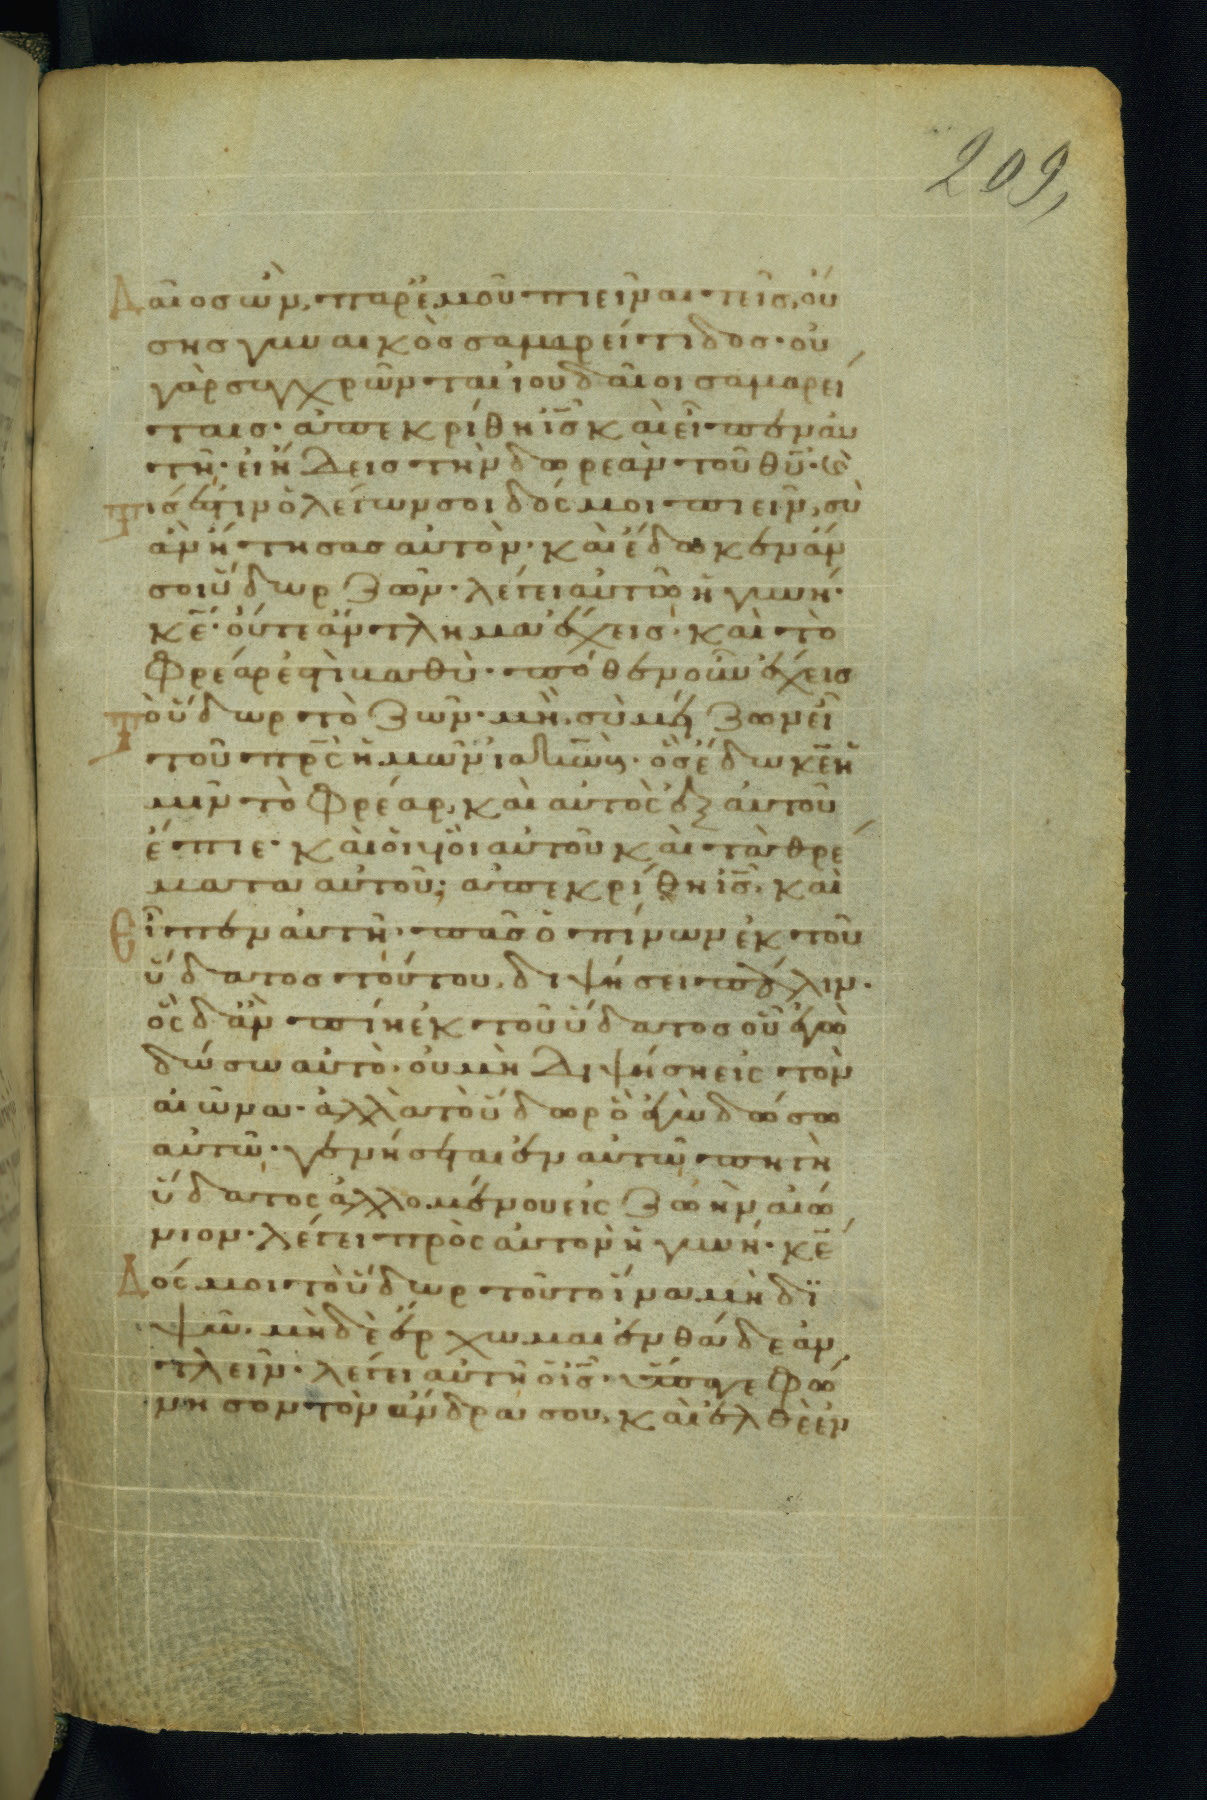 209,
Δαῖος ὢν, παρ' ἐμοῦ πιεῖν αἰτεῖς, οὔ
σης γυναικὸς σαμαρείτιδος· οὐ
γὰρ συγχρῶνται ἰουδαῖοι σαμαρεί
ταις· ἀπεκρίθη ἰς̅ καὶ εἶπεν αὐ
τῆ· εἰ ἤδεις τὴν δωρεὰν τοῦ θυ̅· καὶ
τίς ἐστιν ὁ λέγων σοι δός μοι πιεῖν, σὺ
ἂν ἤτησας αὐτὸν· καὶ ἔδωκεν ἄν
σοι ὕδωρ ζῶν· λέγει αὐτῶ ἡ γυνή·
κε̅· οὔτε ἄντλημα ἔχεις· καὶ τὸ
φρέαρ ἐστὶ βαθὺ· πόθεν οὖν ἔχεις
τὸ ὕδωρ τὸ ζῶν· μὴ σὺ μείζων εἶ
τοῦ πρς̅ ἡμῶν ἰακὼβ· ὃς ἔδωκεν ἡ
μῖν τὸ φρέαρ, καὶ αὐτὸς ἐξ αὐτοῦ
ἔπιε· καὶ οἱ υἱοὶ αὐτοῦ καὶ τὰ θρέ
ματα αὐτοῦ; ἀπεκρίθη ἰς̅. καὶ
εἶπεν αὐτῆ· πᾶς ὁ πίνων ἐκ τοῦ
ὕδατος τούτου, διψήσει πάλιν·
ὃς δ' ἂν πίη ἐκ τοῦ ὕδατος οὗ ἐγὼ
δώσω αὐτὸ· οὐ μὴ διψήση εἰς τὸν
αἰῶνα· ἀλλὰ τὸ ὕδωρ ὃ ἐγὼ δώσω
αὐτῶ· γενήσεται ἐν αὐτῶ πηγὴ
ὕδατος ἀλλομένου εἰς ζωὴν αἰώ
νιον· λέγει πρὸς αὐτὸν ἡ γυνή· κε̅
δός μοι τὸ ὕδωρ τοῦτο ἵνα μὴ δι
ψῶ· μὴ δὲ ἔρχωμαι ἐνθάδε ἀν
τλεῖν· λέγει αὐτῆ ὁ ἰς̅· ὕπαγε φώ
νησον τὸν ἄνδρα σου, καὶ ἐλθὲ ἐν